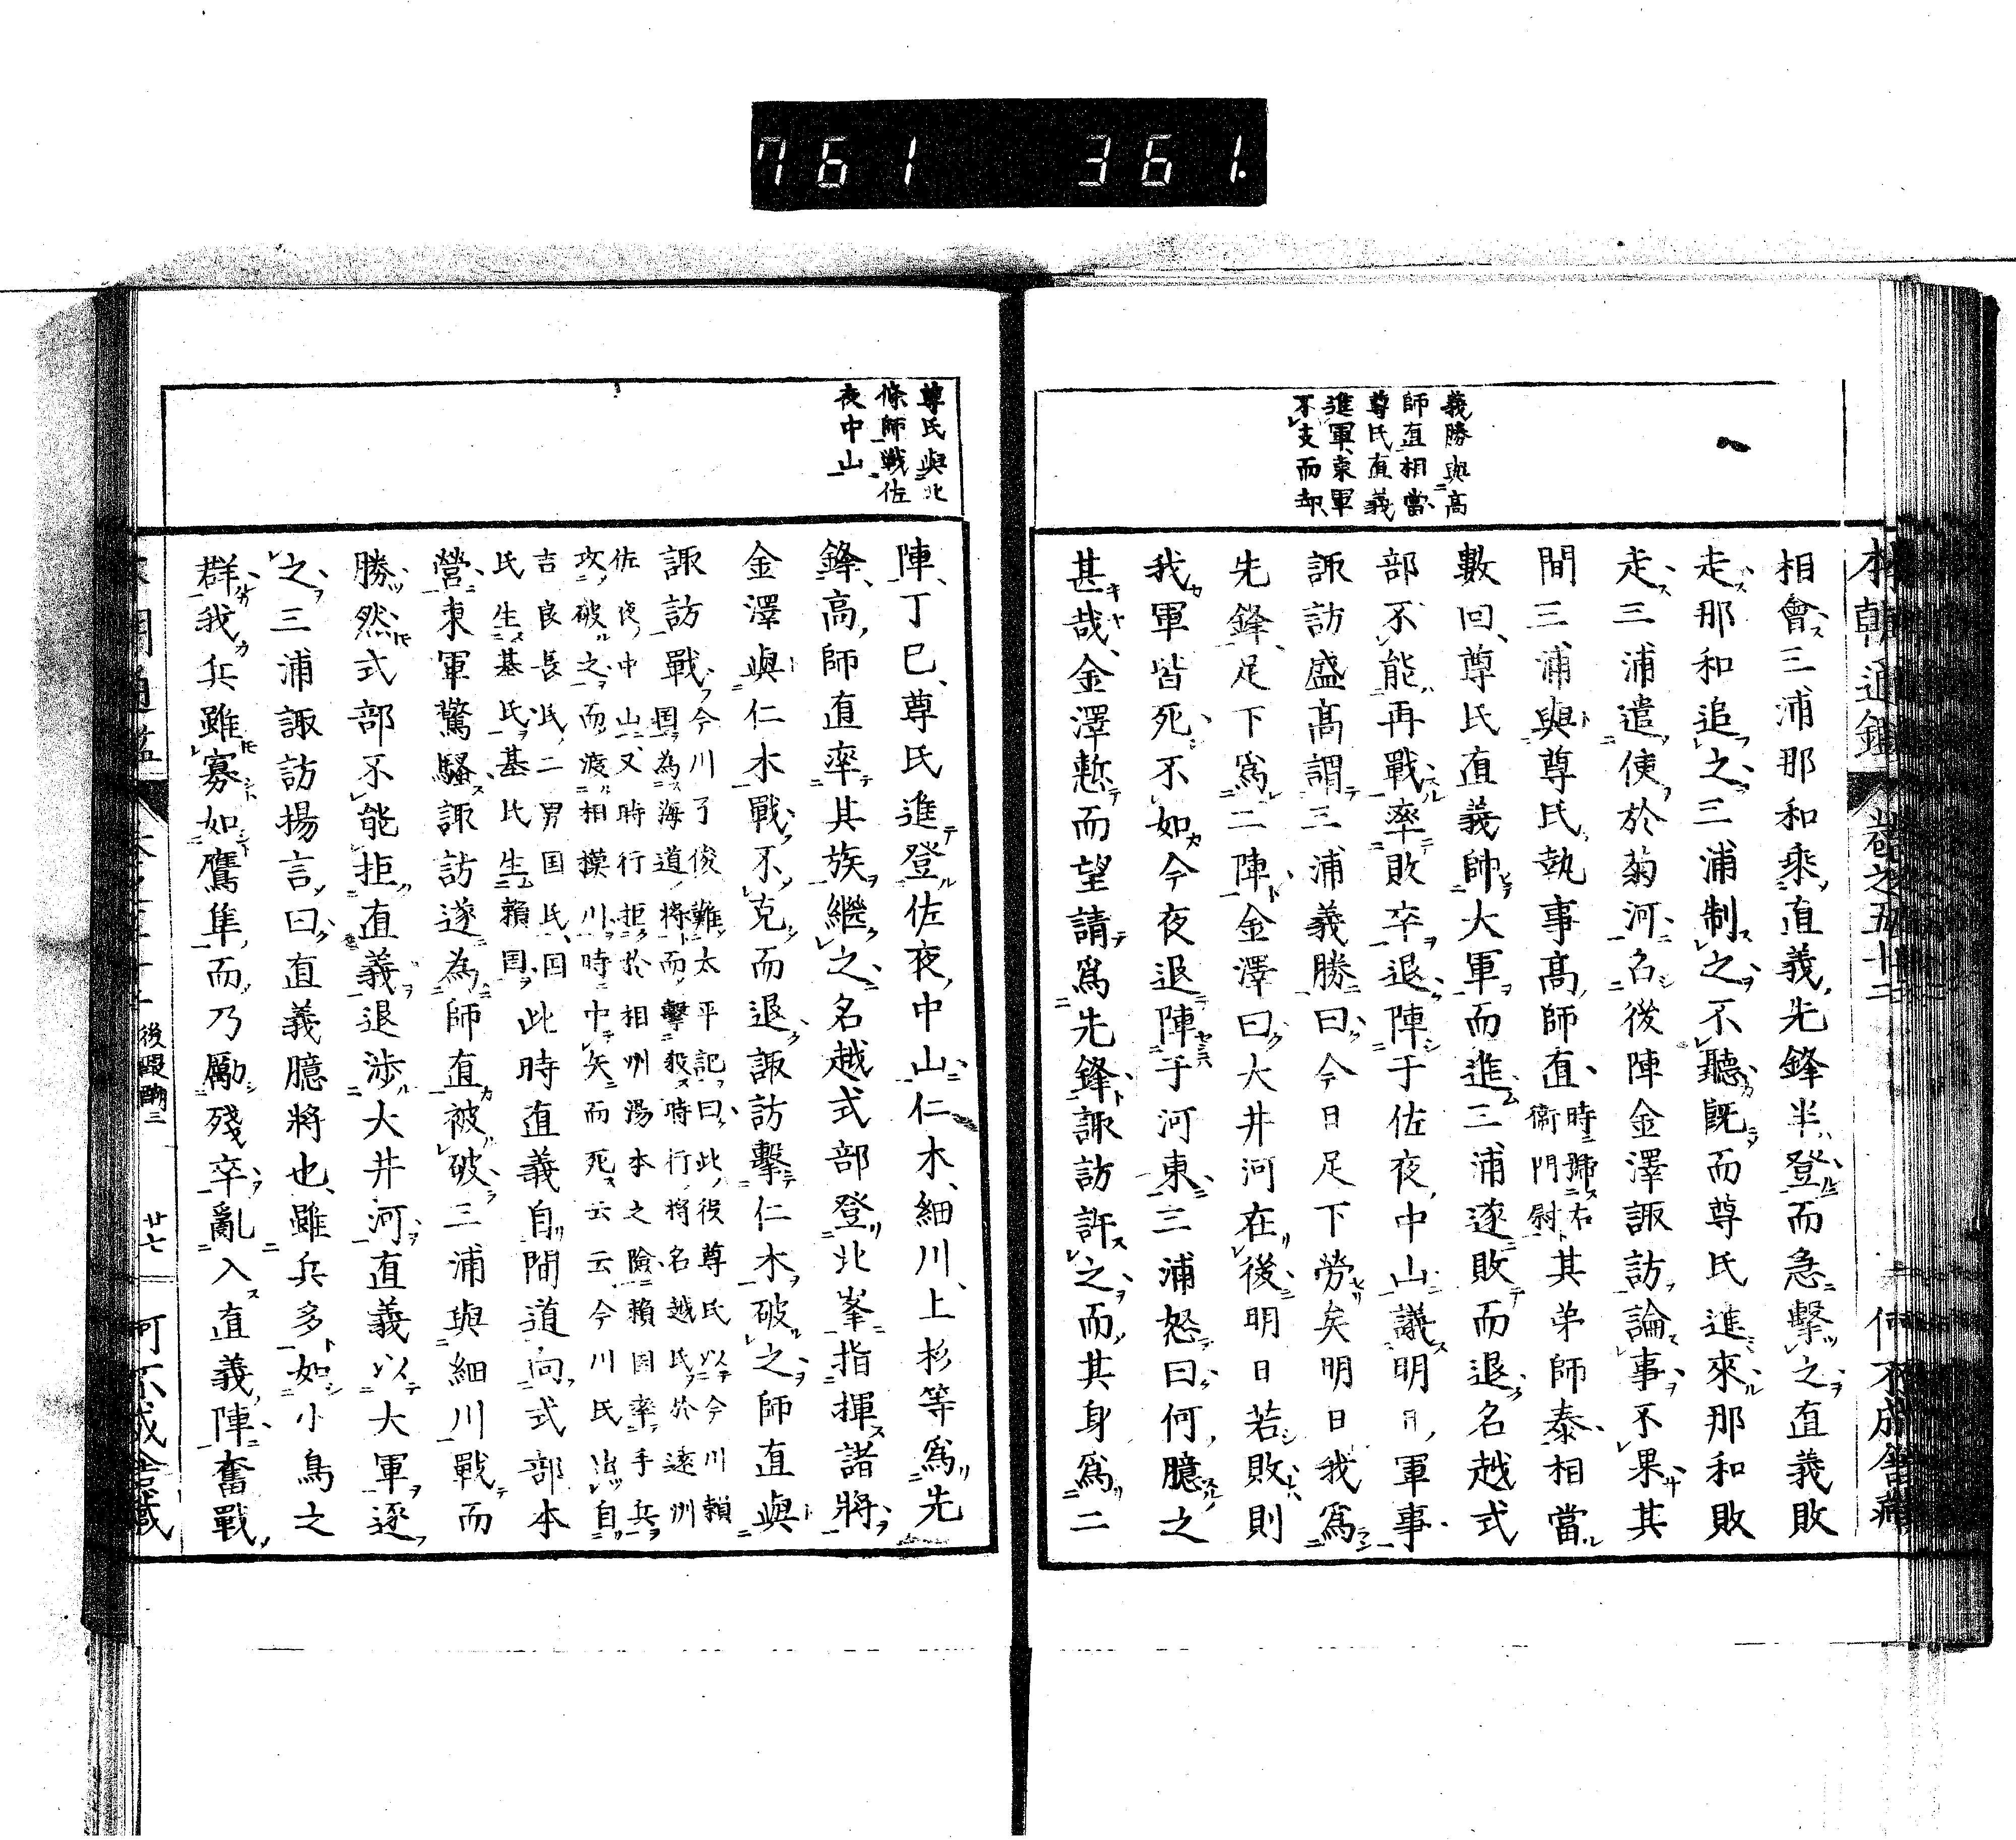 761 361.
本朝通鑑 卷之五十二 何不成舍藏
義勝與高
師直相當
尊氏直義
進軍東軍
不支而却
相會三浦那和乘直義先鋒半登而急擊之直義敗
走那和追之三浦制之不聽既而尊氏進來那和敗
走三浦遣使於菊河召後陣金澤諏訪論事不果其
間三浦與尊氏執事高師直時號右衞門尉其弟師泰相當
數回尊氏直義帥大軍而進三浦遂敗而退名越式
部不能再戰率敗卒退陣于佐夜中山議明日軍事
諏訪盛高謂三浦義勝曰今日足下勞矣明日我爲
先鋒足下爲二陣金澤曰大井河在後明日若敗則
我軍皆死不如今夜退陣于河東三浦怒曰何臆之
甚哉金澤慙而望請爲先鋒諏訪許之而其身爲二
尊氏與北
條師戰佐
夜中山
陣丁巳尊氏進登佐夜中山仁木細川上杉等爲先
鋒高師直率其族繼之名越式部登北峯指揮諸將
金澤與仁木戰不克而退諏訪擊仁木破之師直與
諏訪戰今川了俊難太平記曰此役尊氏以今川賴
国為海道將而擊殺時行將名越氏於遠州
佐夜中山又時行拒於相州湯本之險賴国率手兵
攻破之而渡相摸川時中矢而死云云今川氏出自
吉良長氏二男国氏国
氏生基氏基氏生賴国此時直義自間道向式部本
營東軍驚騷諏訪遂為師直被破三浦與細川戰而
勝然式部不能拒直義退涉大井河直義以大軍逐
之三浦諏訪揚言曰直義臆將也雖兵多如小鳥之
群我兵雖寡如鷹隼而乃勵殘卒亂入直義陣奮戰
後醍醐三 廿七